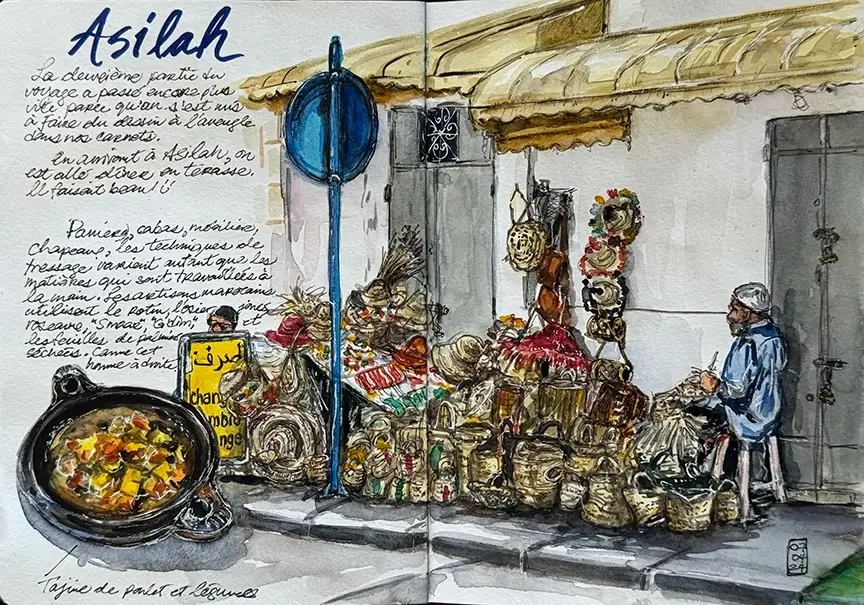 Asilah
La deuxième partie du
voyage a passé encore plus
vite parce qu'on s'est mis
à faire du dessin à l'aveugle
dans nos carnets.
En arrivant à Asilah, on
est allé dîner en terasse.
Il faisait beau!
Paniers, cabas, mobilier,
chapeaux, les techniques de
tressage varient autant que les
matières qui sont travaillées à
la main. Les artisans marocains
utilisent le rotin, l'osier, joncs,
roseaux, "Smar", et
les feuilles de palmier
séchées. Comme cet
homme à droite
صرف
chang
ambio
ange
Tajine de poulet et légumes